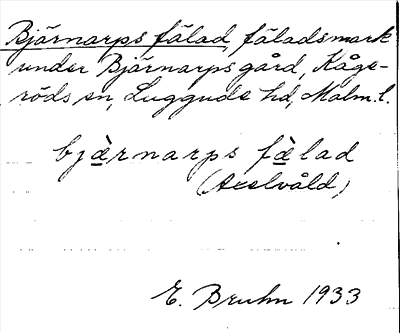 Bjärnarps fälad, fäladsmark
under Bjärnarps gård, Kåge-
röds sn, Luggude hd, Malm. l.
bjæ̀rnarps fæ̀lad
(Axelvåld)
E. Bruhn 1933